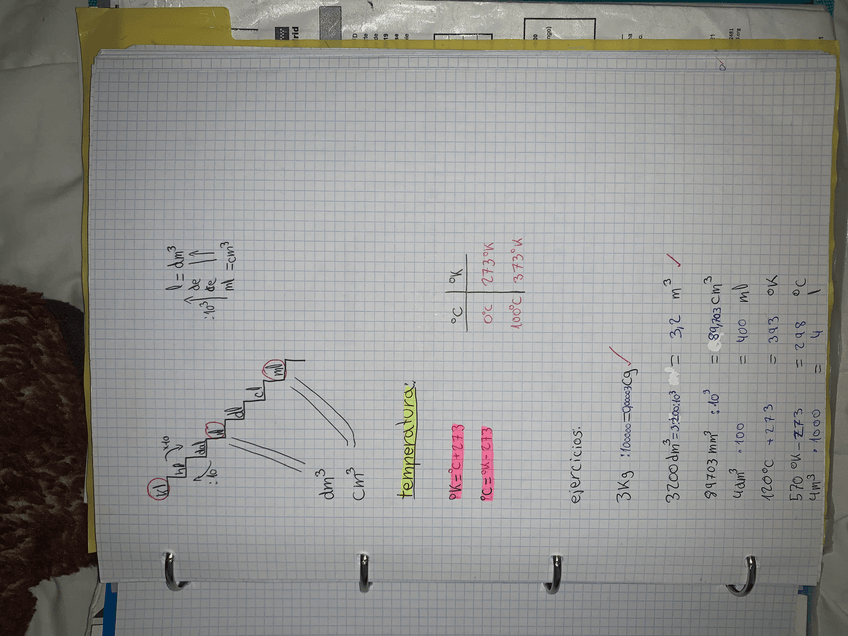 kl
hl ·10
dal
:10
l
dl
cl
ml
l = dm³
:10³ de de
ml = cm³
dm³
cm³
temperatura:
°K=°C+273
°C=°K-273
°C °K
0°C 273°K
100°C 373°K
ejercicios.
3Kg :100000=0,00003Cg
3200dm³=3200:10³ = 3,2 m³
89703 mm³ :10³ = 89,703 cm³
4dm³ ·100 = 400 ml
120°C +273 = 393 °K
570°K-273 = 298 °C
4m³ ·1000 = 4 l
rid